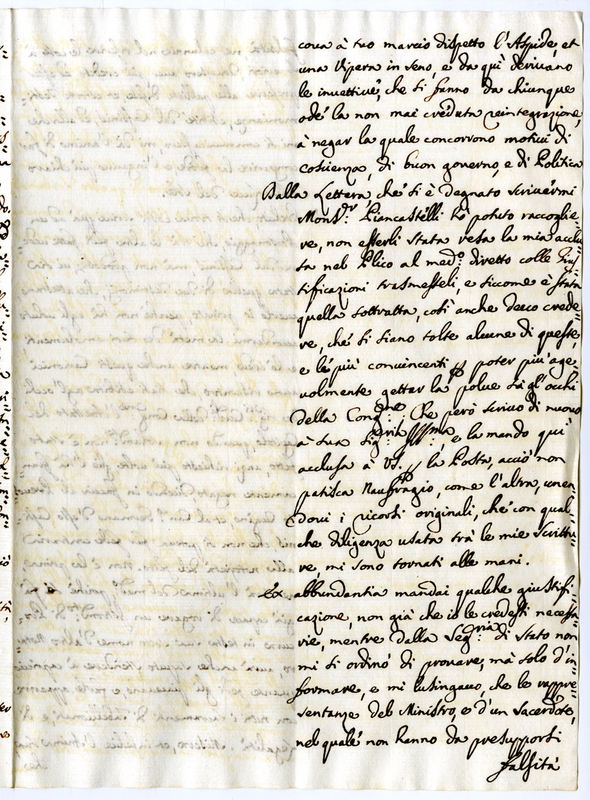 coua à tuo marcio dispetto l'Aspide, et
una Vipera in seno, e da qui derivano
le invettive, che si fanno da chiunque
ode la non mai creduta reintegrazione,
à negar la quale concorrono motivi di
coscienza, di buon governo, e di Politica
Dalla Lettera che si è degnato scrivermi
Mons.r Piancastelli hò potuto raccoglie=
re, non esserli stata resa la mia acclu=
sa nel Plico al med.o diretto colle Giu=
stificazioni trasmesseli, e siccome è stata
quella sottratta, così anche devo crede=
re, che si siano tolte alcune di queste
e le più convincenti p poter più age=
volmente gettar la polve sù gl'occhi
della Cong.ne Che però scrivo di nuovo
à Sua Sig.ria Ill.ma, e la mando quì
acclusa à VS. p la Posta, acciò non
patisca Naufragio, come l'altra, unen=
dovi i ricordi originali, che con qual=
che diligenza usata trà le mie Scrittu=
re, mi sono tornati alle mani.
Ex abbundantia mandai qualche giustifi=
cazione, non già che io le credessi necessa=
rie, mentre dalla Seg.ria di Stato non
mi si ordinò di provare, mà solo d'in=
formare, e mi lusingavo, che le rappre=
sentanze del Ministro, e d'un Sacerdote,
nel quale non hanno da presupporsi
falsità